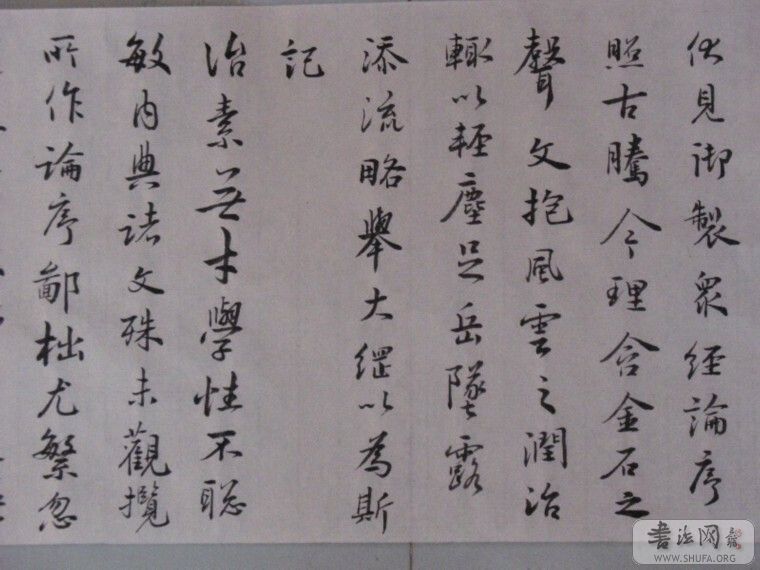 伏見御製衆經論序
照古騰今理含金石之
聲文抱風雲之潤治
輒以輕塵足岳墜露
添流略舉大綱以為斯
記
治素無才學性不聡
敏內典諸文殊未觀攬
所作論序鄙拙尤繁忽
書法网
WWW.SHUFA.ORG